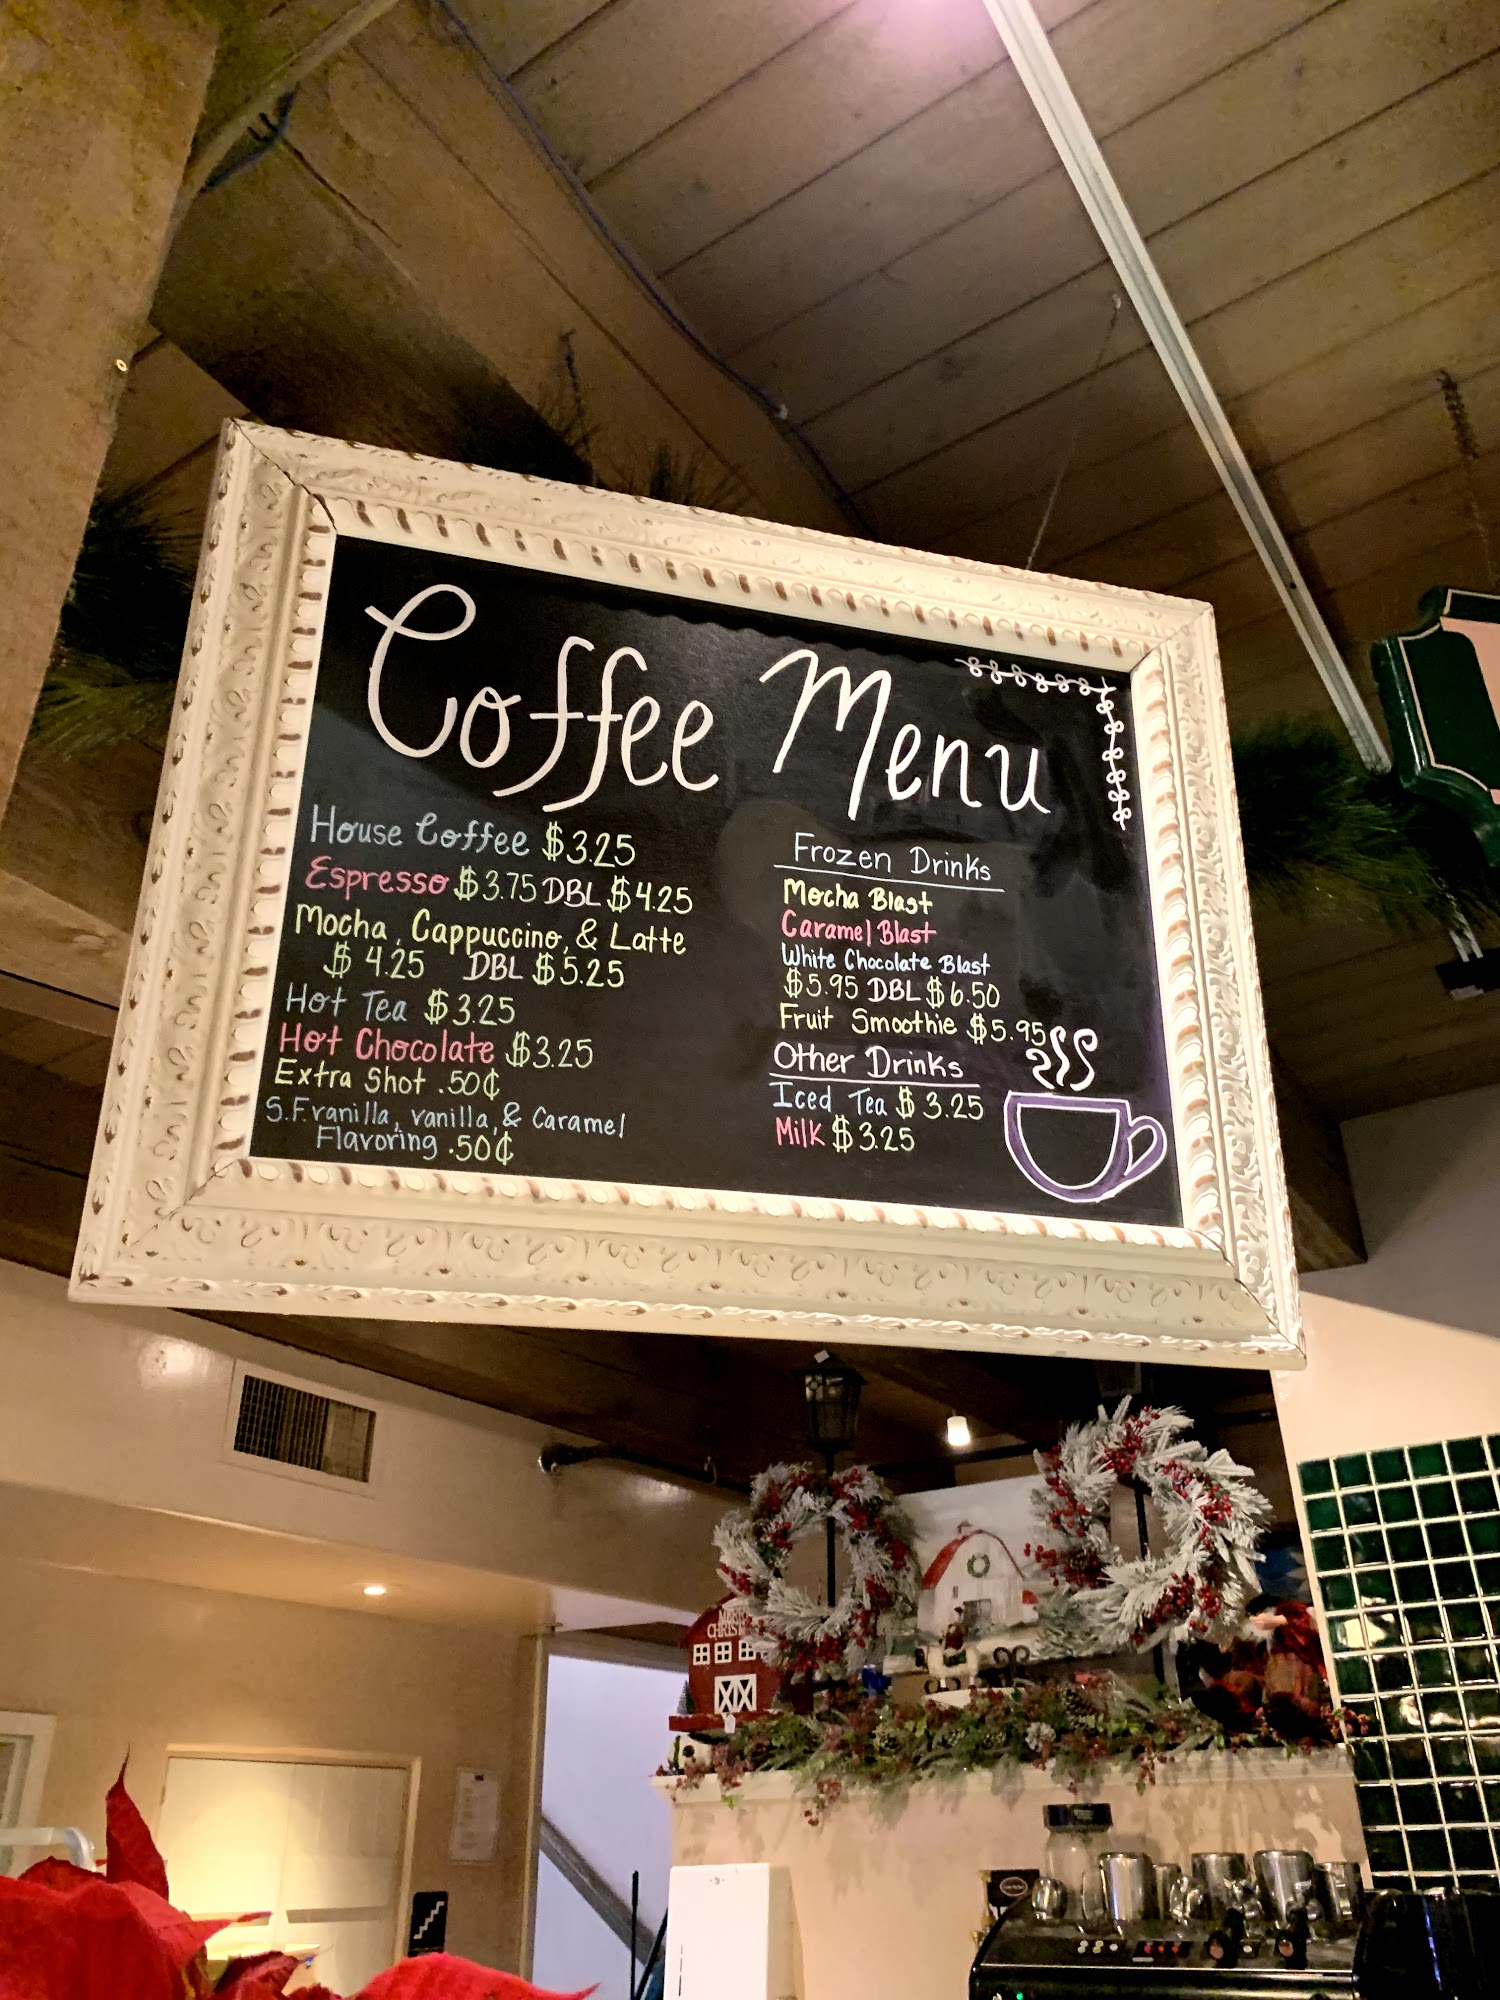 Coffee Menu
House Coffee $3.25
Espresso $3.75 DBL $4.25
Mocha, Cappuccino, & Latte
$4.25 DBL $5.25
Hot Tea $3.25
Hot Chocolate $3.25
Extra Shot .50¢
S.F. vanilla, vanilla, & Caramel
Flavoring .50¢
Frozen Drinks
Mocha Blast
Caramel Blast
White Chocolate Blast
$5.95 DBL $6.50
Fruit Smoothie $5.95
Other Drinks
Iced Tea $3.25
Milk $3.25